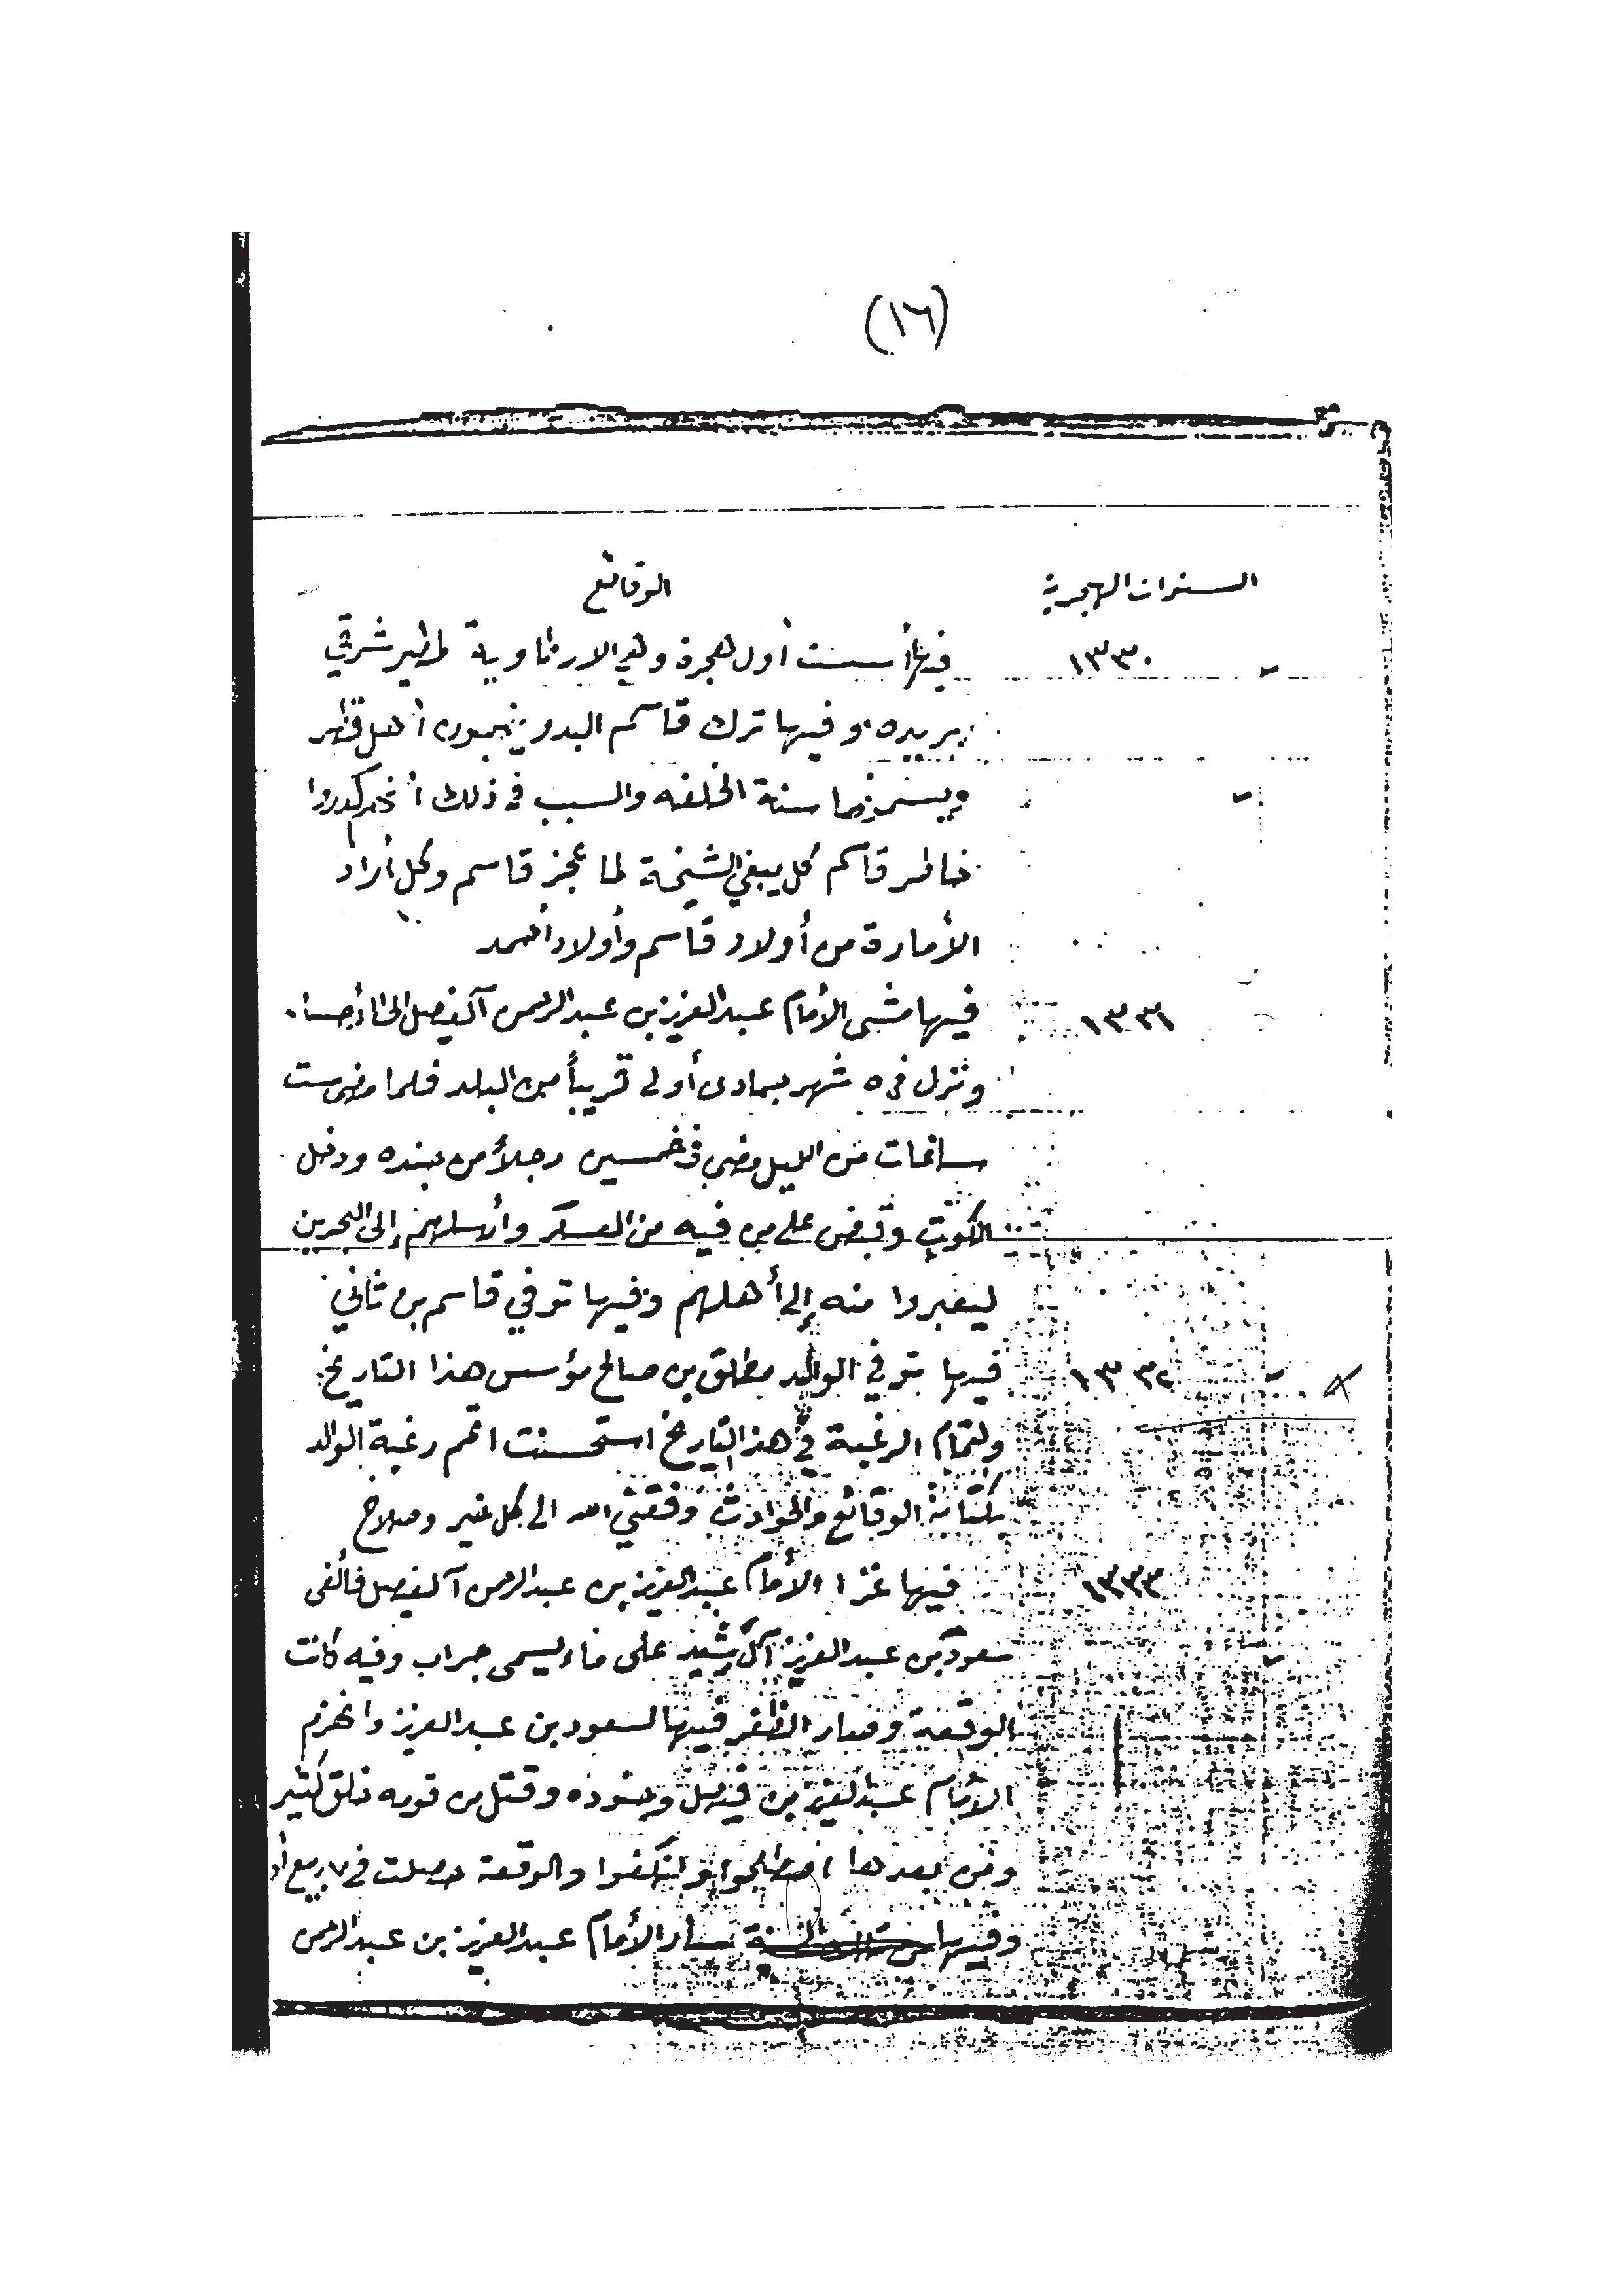 (١٦)
السنوات الهجرية الوقائع
١٣٣٠ فيها أسست أول هجرة وهي الارطاوية لمطير شرقي
بريده وفيها ترك قاسم البدو ينهبون أهل قطر
ويسمونها سنة الخلفه والسبب في ذلك أنهم كدروا
خاطر قاسم كل يبغي الشيخة لما عجز قاسم وكل أراد
الأمارة من أولاد قاسم وأولاد أحمد
١٣٣١ فيها مشى الأمام عبدالعزيز بن عبدالرحمن آل فيصل إلى الأحساء
ونزل في ٥ شهر جمادى أولى قريباً من البلد فلما مضى ست
ساعات من الليل مضى في خمسين رجلاً من جنده ودخل
الكوت وقبض على من فيه من العسكر وأرسلهم إلى البحرين
ليعبروا منه إلى أهلهم وفيها توفي قاسم بن ثاني
١٣٣٢ فيها توفي الوالد مطلق بن صالح مؤسس هذا التاريخ
ولتمام الرغبة في هذا التاريخ استحسنت اتمم رغبة الوالد
بكتابة الوقائع والحوادث وفقني الله الى كل خير وصلاح
١٣٣٣ فيها غزا الأمام عبدالعزيز بن عبدالرحمن آل فيصل فألفى
سعود بن عبدالعزيز آل رشيد على ماء يسمى جراب وفيه كانت
الوقعة وصار الظفر فيها لسعود بن عبدالعزيز وانهزم
الأمام عبدالعزيز بن فيصل وجنوده وقتل من قومه خلق كثير
ومن بعدها اصطلحوا وانكفوا والوقعة حصلت في ٧ ربيع أول
وفيها سار الأمام عبدالعزيز بن عبدالرحمن